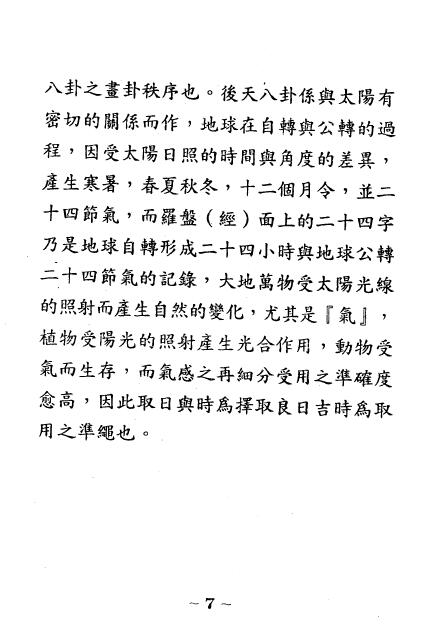 八卦之畫卦秩序也。後天八卦係與太陽有
密切的關係而作，地球在自轉與公轉的過
程，因受太陽日照的時間與角度的差異，
產生寒暑，春夏秋冬，十二個月令，並二
十四節氣，而羅盤（經）面上的二十四字
乃是地球自轉形成二十四小時與地球公轉
二十四節氣的記錄，大地萬物受太陽光線
的照射而產生自然的變化，尤其是『氣』，
植物受陽光的照射產生光合作用，動物受
氣而生存，而氣感之再細分受用之準確度
愈高，因此取日與時爲擇取良日吉時爲取
用之準繩也。
~7~